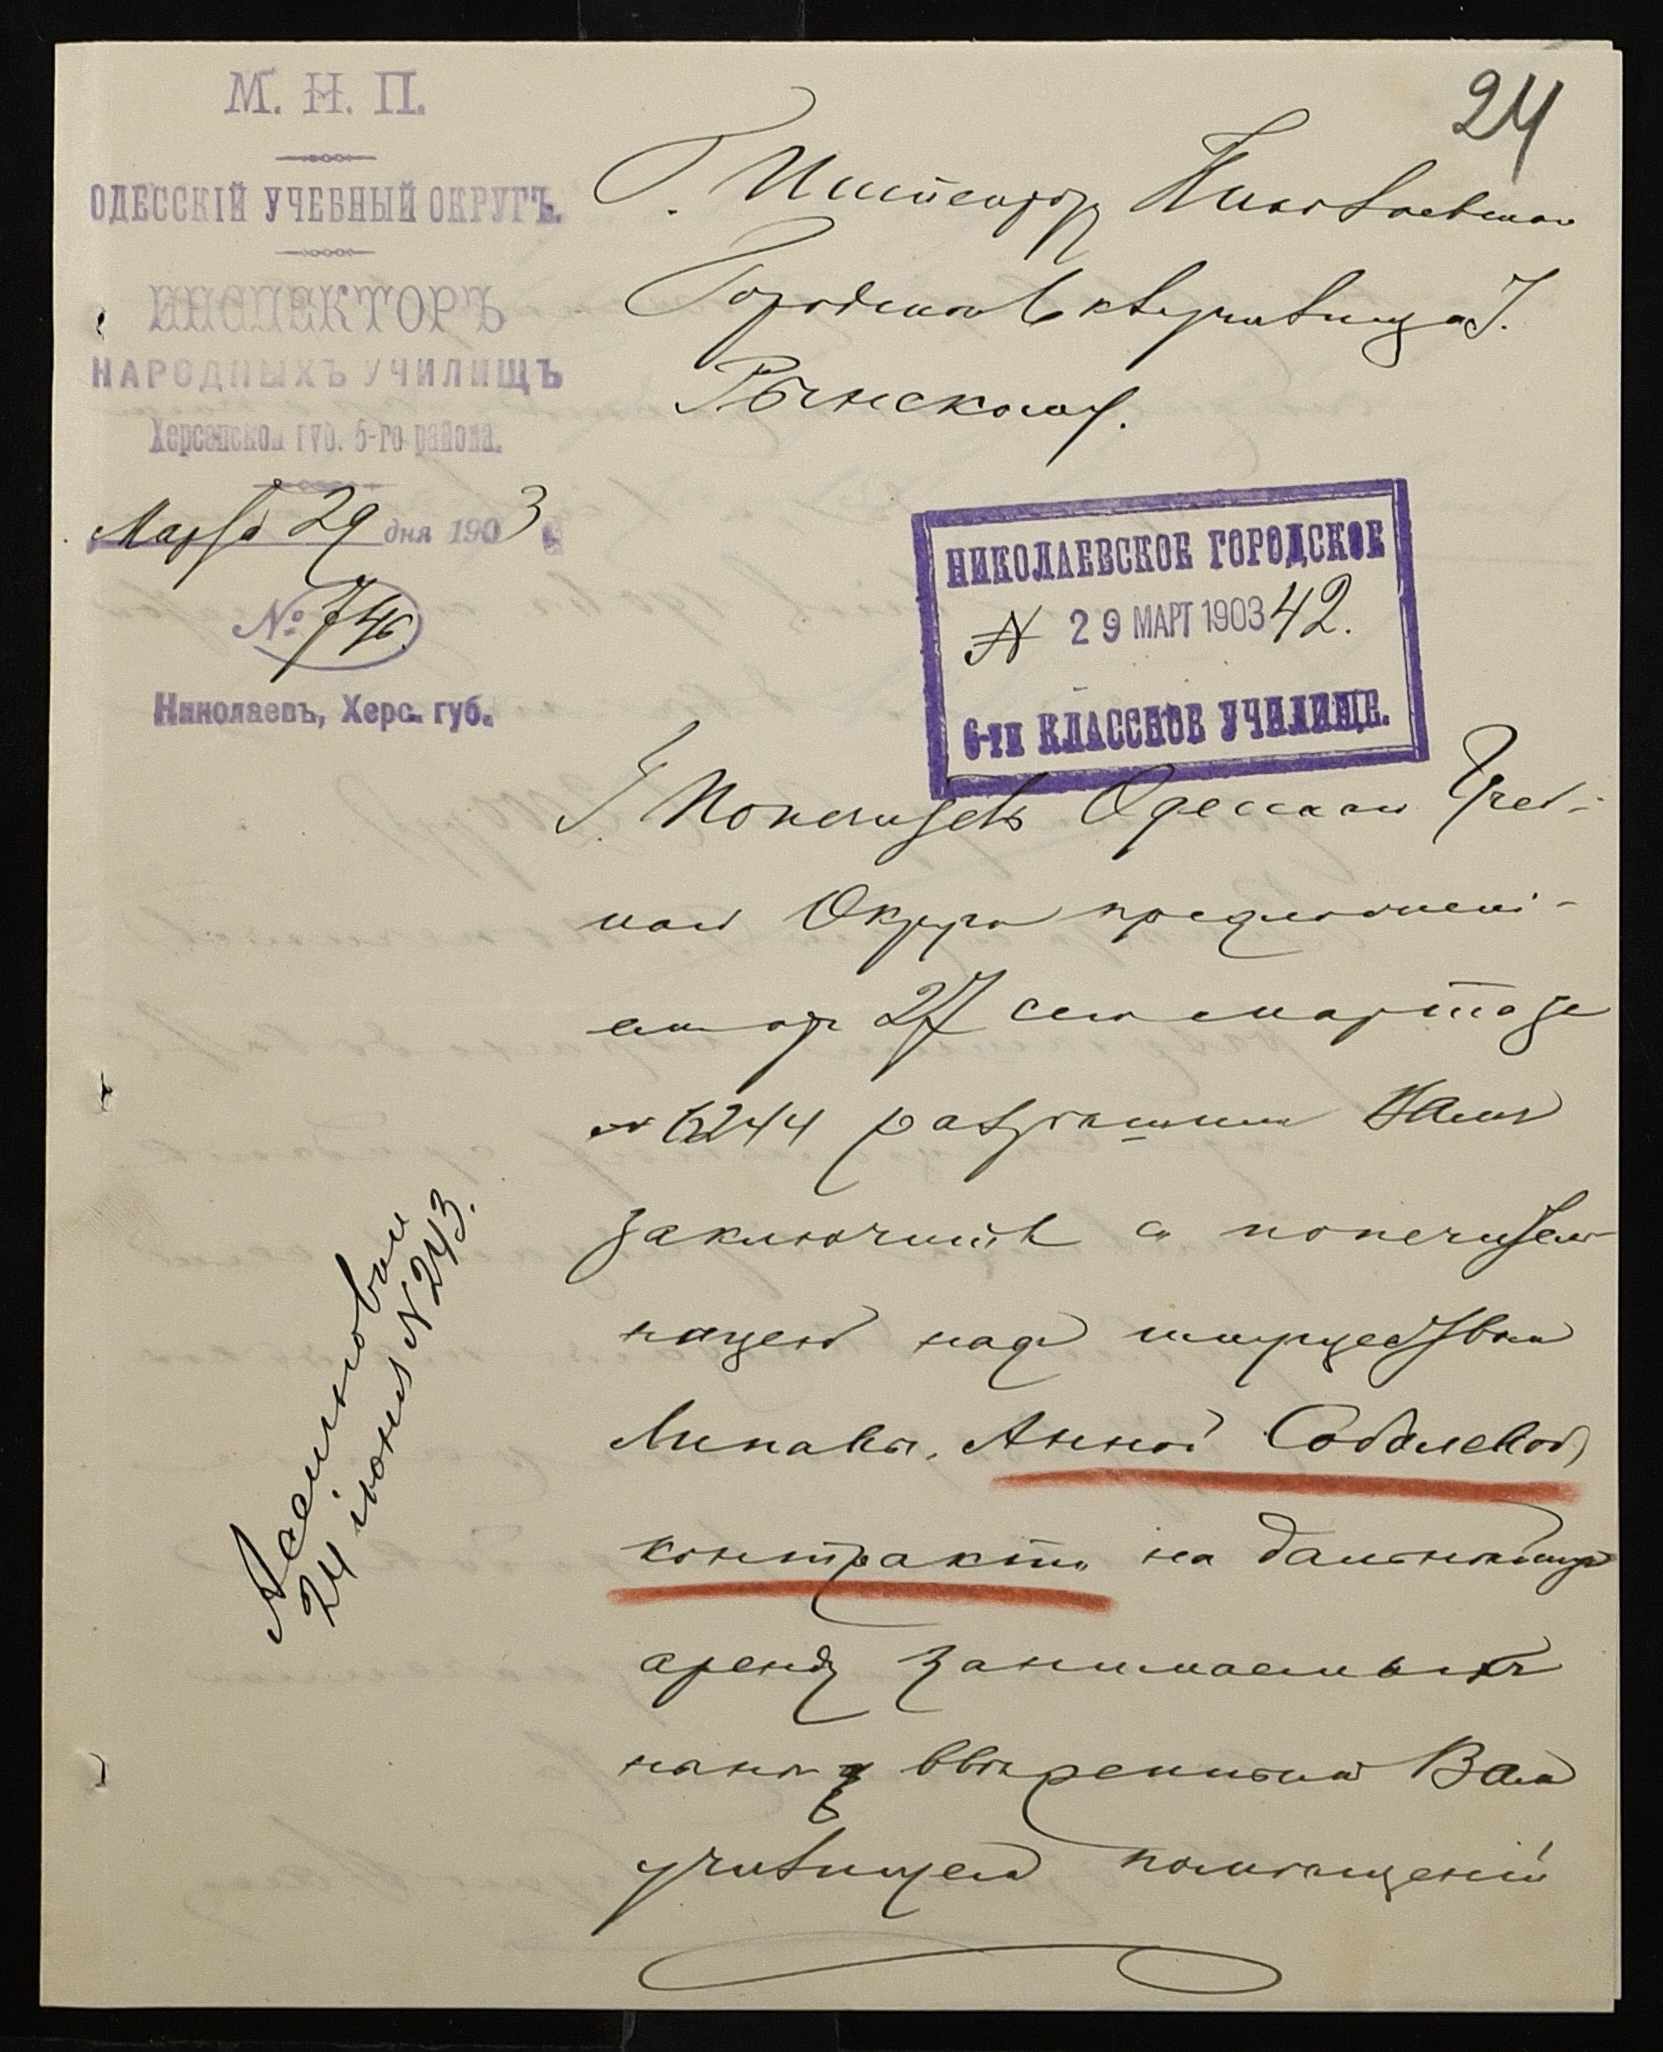 24
М. Н. П.
ОДЕССКІЙ УЧЕБНЫЙ ОКРУГЪ.
ИНСПЕКТОРЪ
НАРОДНЫХЪ УЧИЛИЩЪ
Херсонской губ. 5-го района.
Марта 29 дня 1903
№ 746.
Николаевъ, Херс. губ.
Г. Инспектору Николаевскаго
Городского 6 кл. училища Г.
Рынскому.
НИКОЛАЕВСКОЕ ГОРОДСКОЕ
N 29 МАРТ 1903 42.
6-ти КЛАССНОЕ УЧИЛИЩЕ.
Г. Попечитель Одесскаго Учеб-
наго Округа предложені-
емъ отъ 27 сего марта за
№ 6244 разрѣшилъ Вамъ
заключить съ попечитель-
ницей надъ имуществомъ
Анной Соболевой,
контрактъ на дальнѣйшую
аренду занимаемыхъ
нынѣ ввѣреннымъ Вамъ
училищемъ помѣщеній
24 іюня N 243.